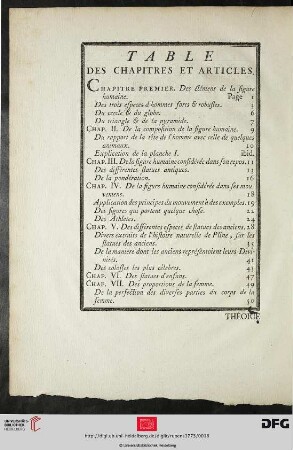 TABLE
DES CHAPITRES ET ARTICLES.
CHAPITRE PREMIER. Des élémens de la figure
humaine. Page 1
Des trois especes d'hommes forts & robustes. 5
Du cercle & du globe. 6
Du triangle & de la pyramide. 7
CHAP. II. De la composition de la figure humaine. 9
Du rapport de la tête de l'homme avec celle de quelques
animaux. 10
Explication de la planche I. Ibid.
CHAP. III. De la figure humaine considérée dans son repos. 11
Des différentes statues antiques. 13
De la pondération. 16
CHAP. IV. De la figure humaine considérée dans ses mou-
vemens. 18
Application des principes du mouvement à des exemples. 19
Des figures qui portent quelque chose. 22
Des Athletes. 24
CHAP. V. Des différentes especes de statues des anciens. 28
Divers extraits de l'histoire naturelle de Pline, sur les
statues des anciens. 35
De la maniere dont les anciens représentoient leurs Divi-
nités. 41
Des colosses les plus célebres. 45
CHAP. VI. Des statues d'enfans. 47
CHAP. VII. Des proportions de la femme. 49
De la perfection des diverses parties du corps de la
femme. 50
THÉORIE
UNIVERSITÄTS-
BIBLIOTHEK
HEIDELBERG
DFG
© Universitätsbibliothek Heidelberg